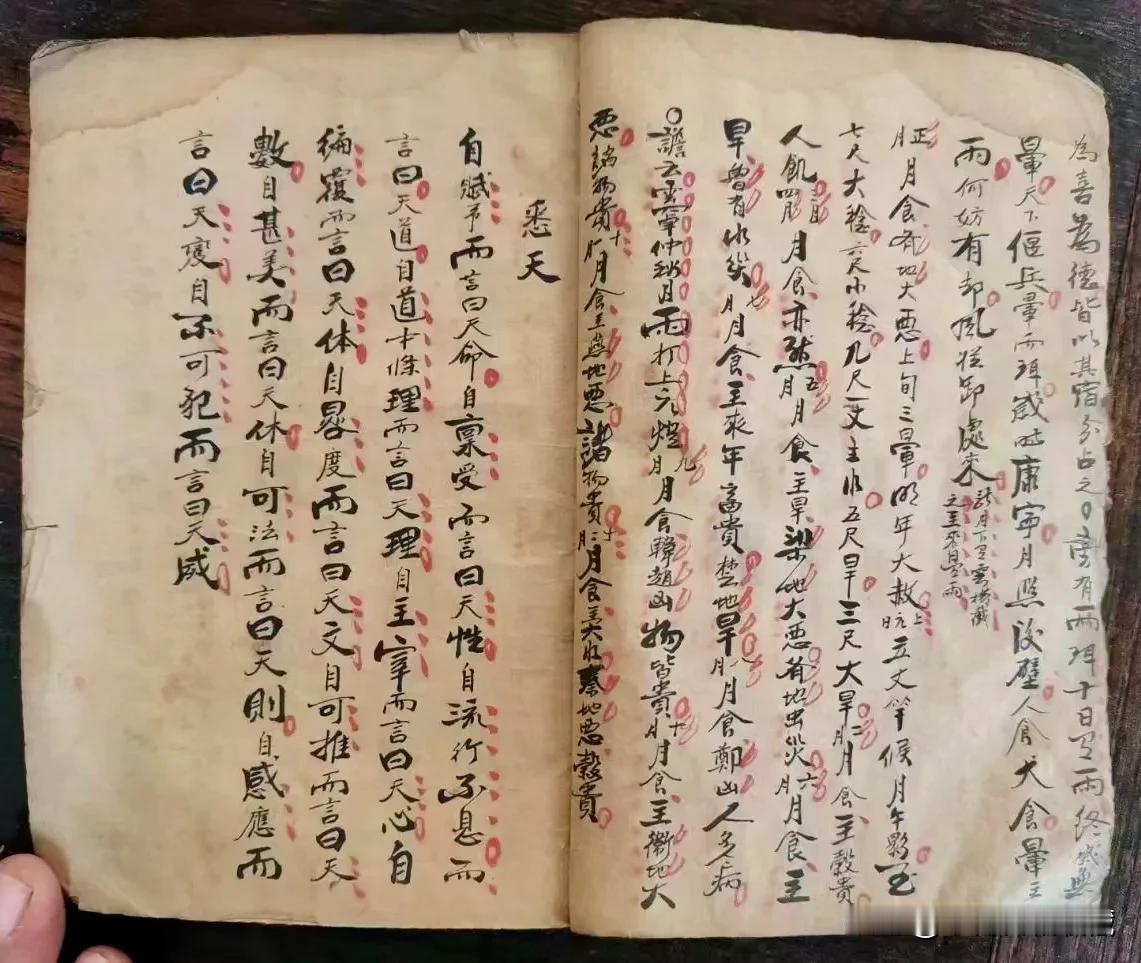 為喜為德皆以其宿分占之〇旁有兩珥十日有雨終歲無
暈天下偃兵暈而珥歲時康寧月照後壁人食犬食暈主
雨何妨有卸風從卸處來
正月食有地大惡上旬三暈明年大赦上立丈竿候月午影至
七尺大稔六尺小稔九尺一丈主水五尺旱三尺大旱二月食主穀貴
人飢三月四月月食亦然五月月食主旱梁地大惡有地出災六月月食主
旱魯有水災七月月食主來年富貴楚地旱八月月食鄭凶人多病
〇諺云雲罩仲秋月雨打上元燈九月月食韓趙凶物皆貴十月月食主衛地大
惡諸物貴十一月月食主燕地惡諸物貴十二月月食主大水秦地惡穀貴
悉天
自賦予而言曰天命自稟受而言曰天性自流行不息而
言曰天道自道中條理而言曰天理自主宰而言曰天心自
徧覆而言曰天体自晷度而言曰天文自可推而言曰天
數自甚美而言曰天休自可法而言曰天則自感應而
言曰天寔自不可犯而言曰天威